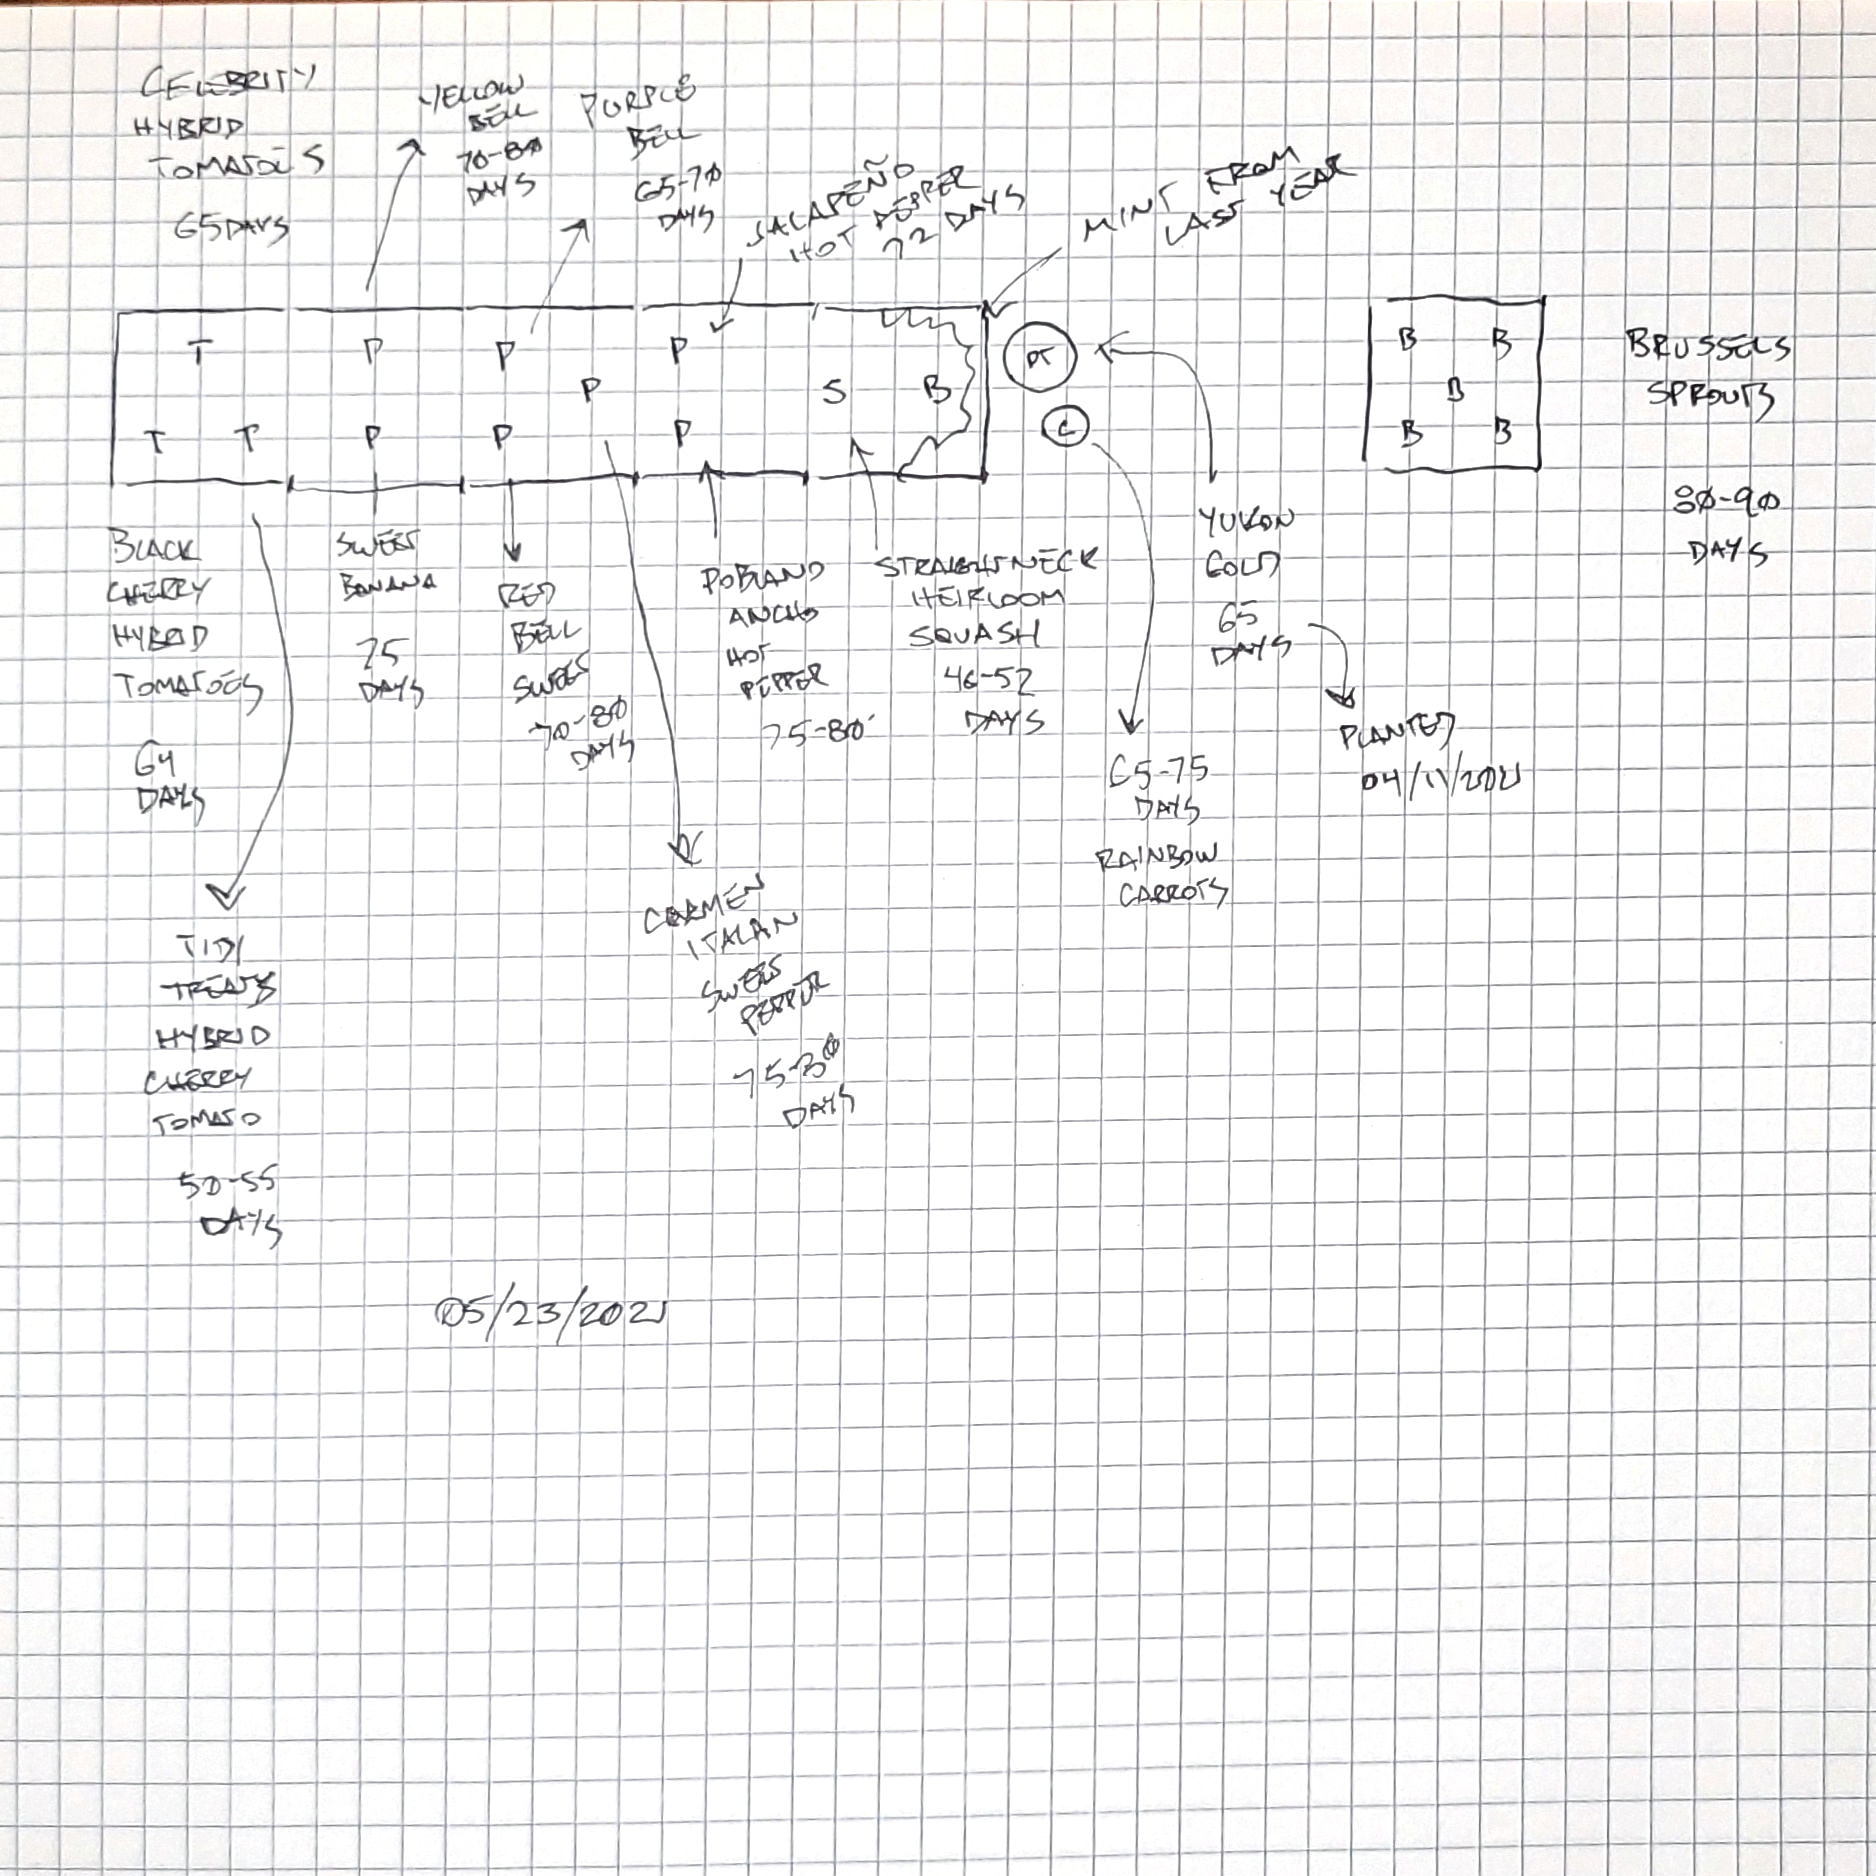 CELEBRITY
HYBRID
TOMATOES
65 DAYS
YELLOW
BELL
70-80
DAYS
PURPLE
BELL
65-70
DAYS
JALAPEÑO
HOT PEPPER
72 DAYS
MINT FROM
LAST YEAR
T P P P
P S B
T T P P P
PT
C
B B
B
B B
BRUSSELS
SPROUTS
80-90
DAYS
BLACK
CHERRY
HYBRID
TOMATOES
64
DAYS
SWEET
BANANA
75
DAYS
RED
BELL
SWEET
70-80
DAYS
POBLANO
ANCHO
HOT
PEPPER
75-80
STRAIGHTNECK
HEIRLOOM
SQUASH
46-52
DAYS
YUKON
GOLD
65
DAYS
PLANTED
04/11/2021
65-75
DAYS
RAINBOW
CARROTS
TIDY
TREATS
HYBRID
CHERRY
TOMATO
50-55
DAYS
CARMEN
ITALAN
SWEET
PEPPER
75-80
DAYS
05/23/2021